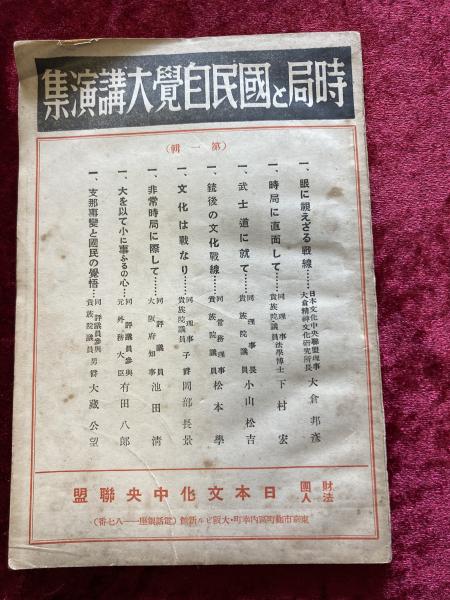 時局と國民自覺大講演集
(第一輯)
一、眼に視えざる戰線……日本文化中央聯盟理事 大倉精神文化研究所長 大倉邦彦
一、時局に直面して……同理事法學博士 貴族院議員 下村宏
一、武士道に就て……同理事長 貴族院議員 小山松吉
一、銃後の文化戰線……同常務理事 貴族院議員 松本學
一、文化は戰なり……同理事子爵 貴族院議員 岡部長景
一、非常時局に際して……同評議員 大阪府知事 池田清
一、大を以て小に事ふるの心…同評議員參與 元外務大臣 有田八郎
一、支那事變と國民の覺悟…同評議員參與 貴族院議員 男爵 大藏公望
財團法人 日本文化中央聯盟
東京市麴町區內幸町・大阪ビル新館(電話銀座一一八七番)